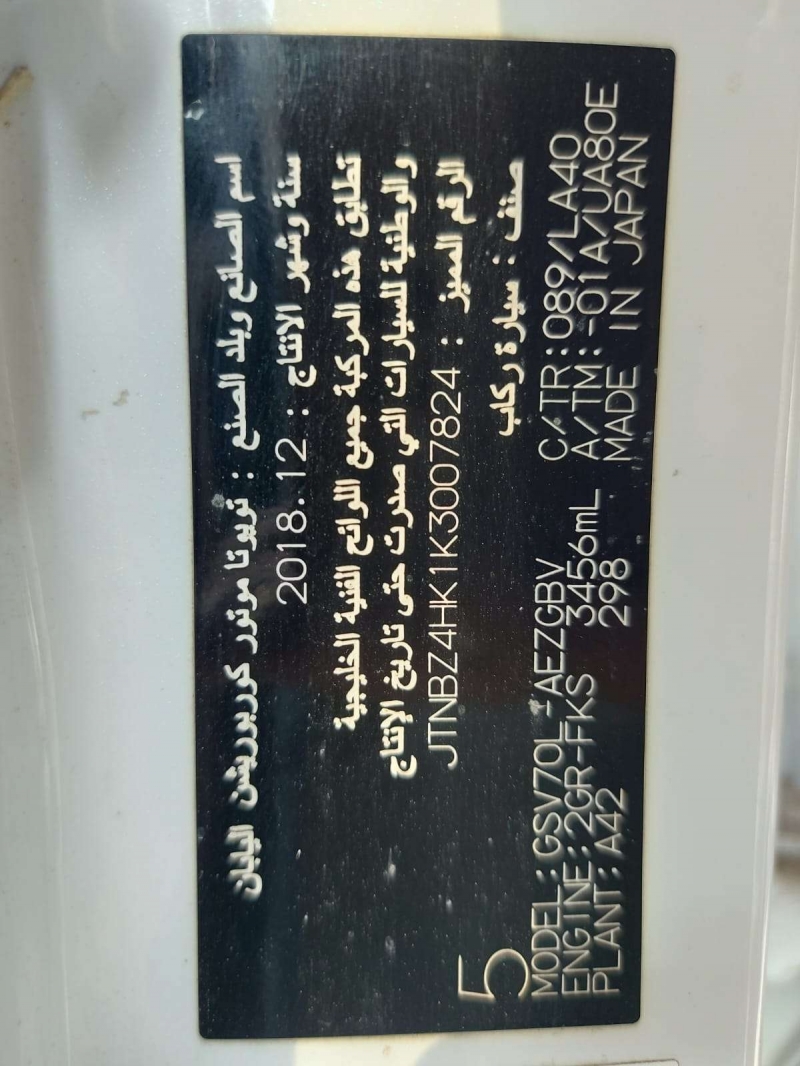 اسم الصانع وبلد الصنع : تويوتا موتور كوربوريشن اليابان
سنة وشهر الانتاج : 2018.12
تطابق هذه المركبة جميع اللوائح الفنية الخليجية
والوطنية للسيارات التي صدرت حتى تاريخ الإنتاج
الرقم المميز : JTNBZ4HK1K3007824
صنف : سيارة ركاب
5
MODEL:GSV70L-AEZGBV C/TR:089/LA40
ENGINE:2GR-FKS 3456mL A/TM:-01A/UA80E
PLANT:A42 298 MADE IN JAPAN